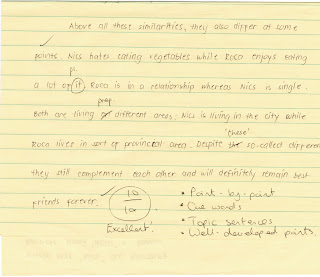 Above all these similarities, they also differ at some
points. Nics hates eating vegetables while Roco enjoys eating
pl.
a lot of it. Roco is in a relationship whereas Nics is single.
prep.
Both are living different areas; Nics is living in the city while
"these"
Roco lives in sort of provincial area. Despite the so-called differen
they still complement each other and will definitely remain best
friends forever.
10
10
Excellent.
• Point-by-point
• Cue words
• Topic sentences
• Well-developed points.